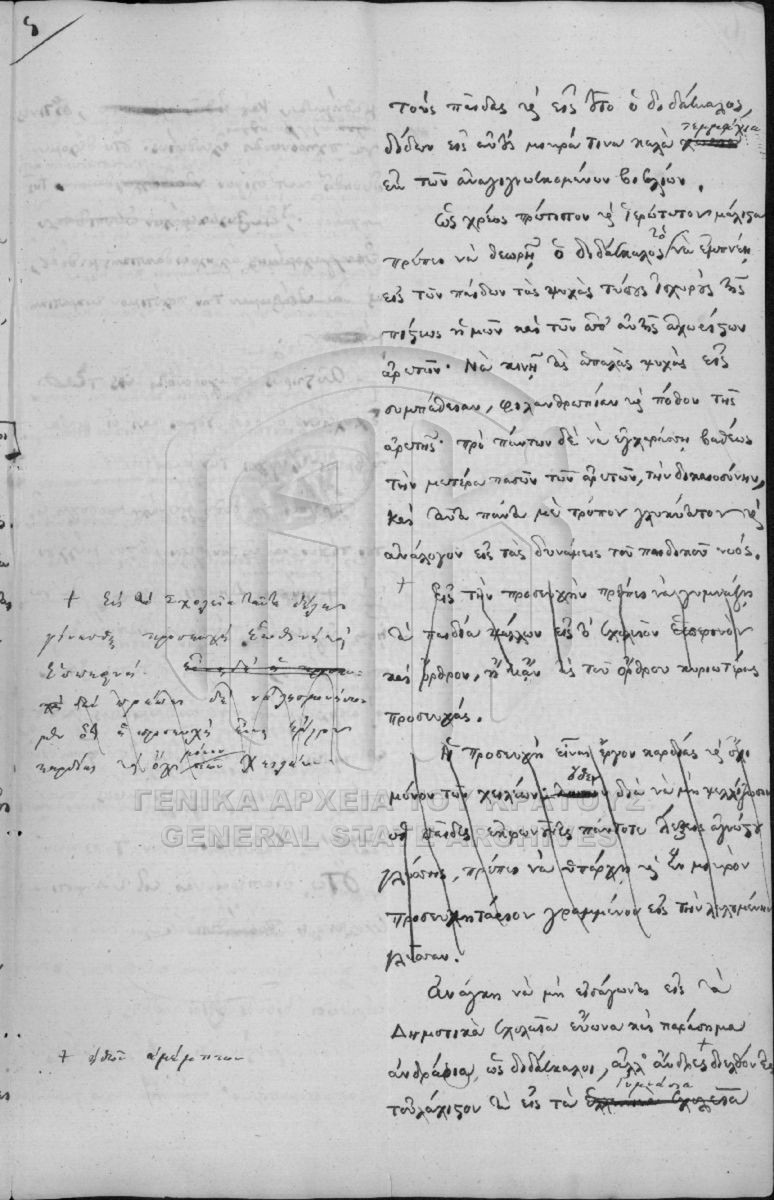 8
τοὺς παῖδας καὶ εἰς τοῦτο ὁ διδάσκαλος,
δίδων εἰς αὐτοὺς μικρά τινα καλὰ τεμμάχια
ἐκ τῶν ἀναγιγνωσκομένων βιβλίων.
Ὡς χρέος πρώτιστον καὶ ἱερώτατον μάλιστα
πρέπει νὰ θεωρῇ ὁ διδάσκαλος τὸ νὰ ἐμπνέῃ
εἰς τῶν παίδων τὰς ψυχὰς τοὺς ἰσχυροὺς τῆς
πίστεως ἡμῶν καὶ τῶν ἀπ' αὐτῆς
ἀρετῶν. Νὰ κινῇ τὰς ἁπαλὰς ψυχὰς εἰς
συμπάθειαν, φιλανθρωπίαν καὶ πόθον τῆς
ἀρετῆς. πρὸ πάντων δὲ νὰ ἐγχαράσσῃ βαθέως
τὴν μητέρα πασῶν τῶν ἀρετῶν, τὴν δικαιοσύνην,
καὶ ταῦτα πάντα μὲ τρόπον γλυκύτατον καὶ
ἀνάλογον εἰς τὰς δυνάμεις τοῦ παιδικοῦ νοός.
+ Εἰς τὴν προσευχὴν πρέπει νὰ γυμνάζῃ
τὰ παιδία ψάλλων εἰς τὸ σχολεῖον ἑσπερινὸν
καὶ ὄρθρον, ἢ κἂν τὰς τοῦ ὄρθρου κυριωτέρας
προσευχάς.
Ἡ προσευχὴ εἶναι ἔργον καρδίας καὶ ὄχι
μόνον τῶν χειλέων· ὅθεν διὰ νὰ μὴ ψελλίζωσιν
οἱ παῖδες ἐκφωνοῦντες πάντοτε λέξεις ἀγνώστου
γλώσσης, πρέπει νὰ ὑπάρχῃ καὶ ἓν μικρὸν
προσευχητάριον γραμμένον εἰς τὴν λαλουμένην
γλῶσσαν.
Ἀνάγκη νὰ μὴ εἰσάγωνται εἰς τὰ
Δημοτικὰ σχολεῖα εὔωνα καὶ παράσημα
ἀνδράρια, ὡς διδάσκαλοι, ἀλλ' ἄνδρες + διελθόντες
τοὐλάχιστον τὰ εἰς τὰ Γυμνάσια σχολεῖα
+ Εἰς τὰ Σχολεῖα ταῦτα θέλει
γίνεσθαι προσευχὴ Ἑωθινὴ καὶ
Ἑσπερινή.
δὲν πρέπει δὲ νὰ λησμονῶσι
μὲν ὅτι ἡ προσευχὴ εἶναι ἔργον
καρδίας καὶ ὄχι μόνον τῶν χειλέων.
+ ἠθῶν ἀμέμπτων
ΓΕΝΙΚΑ ΑΡΧΕΙΑ ΤΟΥ ΚΡΑΤΟΥΣ
GENERAL STATE ARCHIVES